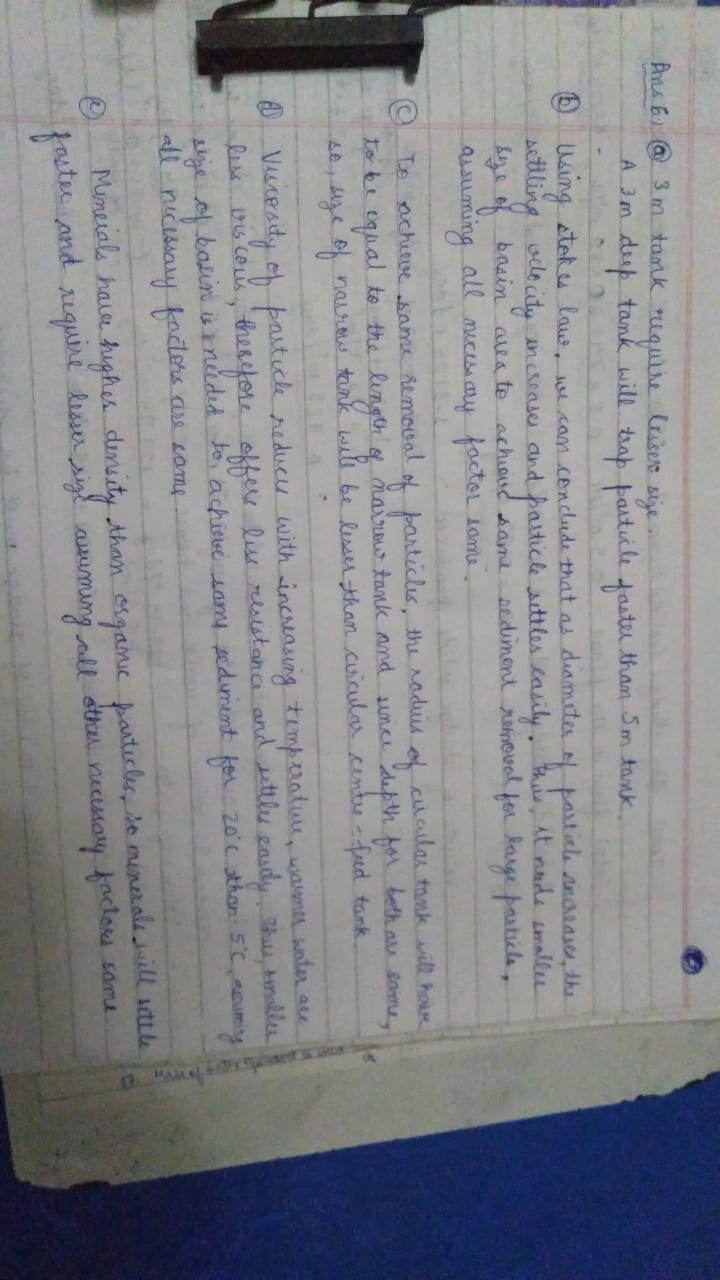 Ans 6) (a) 3 m tank require lesser size.
A 3m deep tank will trap particle faster than 5m tank.
(b) Using stokes law, we can conclude that as diameter of particle increases, the
settling velocity increases and particle settles easily. Thus, it needs smaller
size of basin area to achieve same sediment removal for large particle,
assuming all necessary factor same.
(c) To achieve same removal of particles, the radius of circular tank will have
to be equal to the length of narrow tank and since depth for both are same,
so, size of narrow tank will be lesser than circular centre-feed tank
(d) Viscosity of particle reduces with increasing temperature, warmer water are
less viscous, therefore offers less resistance and settles easily. Thus, smaller
size of basin is needed to achieve same sediment for 20°C than 5°C, assuming
all necessary factors are same.
(e) Minerals have higher density than organic particles, so minerals will settle
faster and require lesser size assuming all other necessary factors same